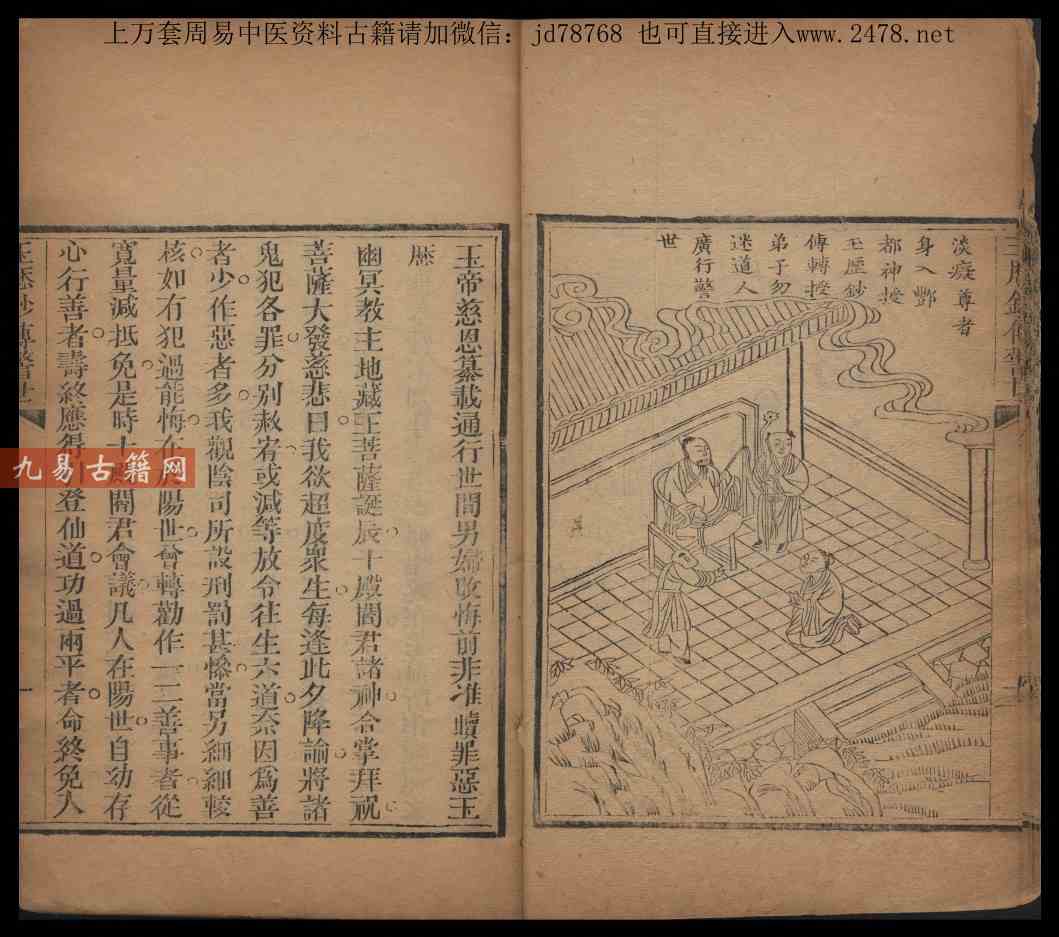 上万套周易中医资料古籍请加微信：jd78768 也可直接进入www.2478.net
淡癡尊者
身入酆
都神授
玉歷鈔
傳轉授
弟子勿
迷道人
廣行警
世
玉帝慈恩纂載通行世間男婦改悔前非准贖罪惡玉
歷
幽冥教主地藏王菩薩誕辰十殿閻君諸神合掌拜祝
菩薩大發慈悲曰我欲超度眾生每逢此夕降諭將諸
鬼犯各罪分別赦宥或減等放令往生六道奈因為善
者少作惡者多我觀陰司所設刑罰甚慘當另細細較
核如有犯過能悔在於陽世會轉勸作一二善事者從
寬量減抵免是時十殿閻君會議凡人在陽世自幼存
心行善者壽終應得引登仙道功過兩平者命終免入
玉歷鈔傳警世
一
九易古籍网